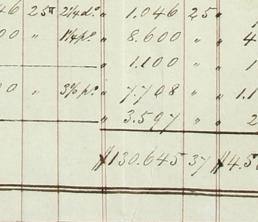 46 25 2¼ d° " 1.046 25 "
00 " 1¼ p° " 8.600 " " 4
" 1.100 " " 1
00 " 3⅝ p° " 7.708 " " 1.1
" 3.597 " " 2
$130.645 37 $4.5